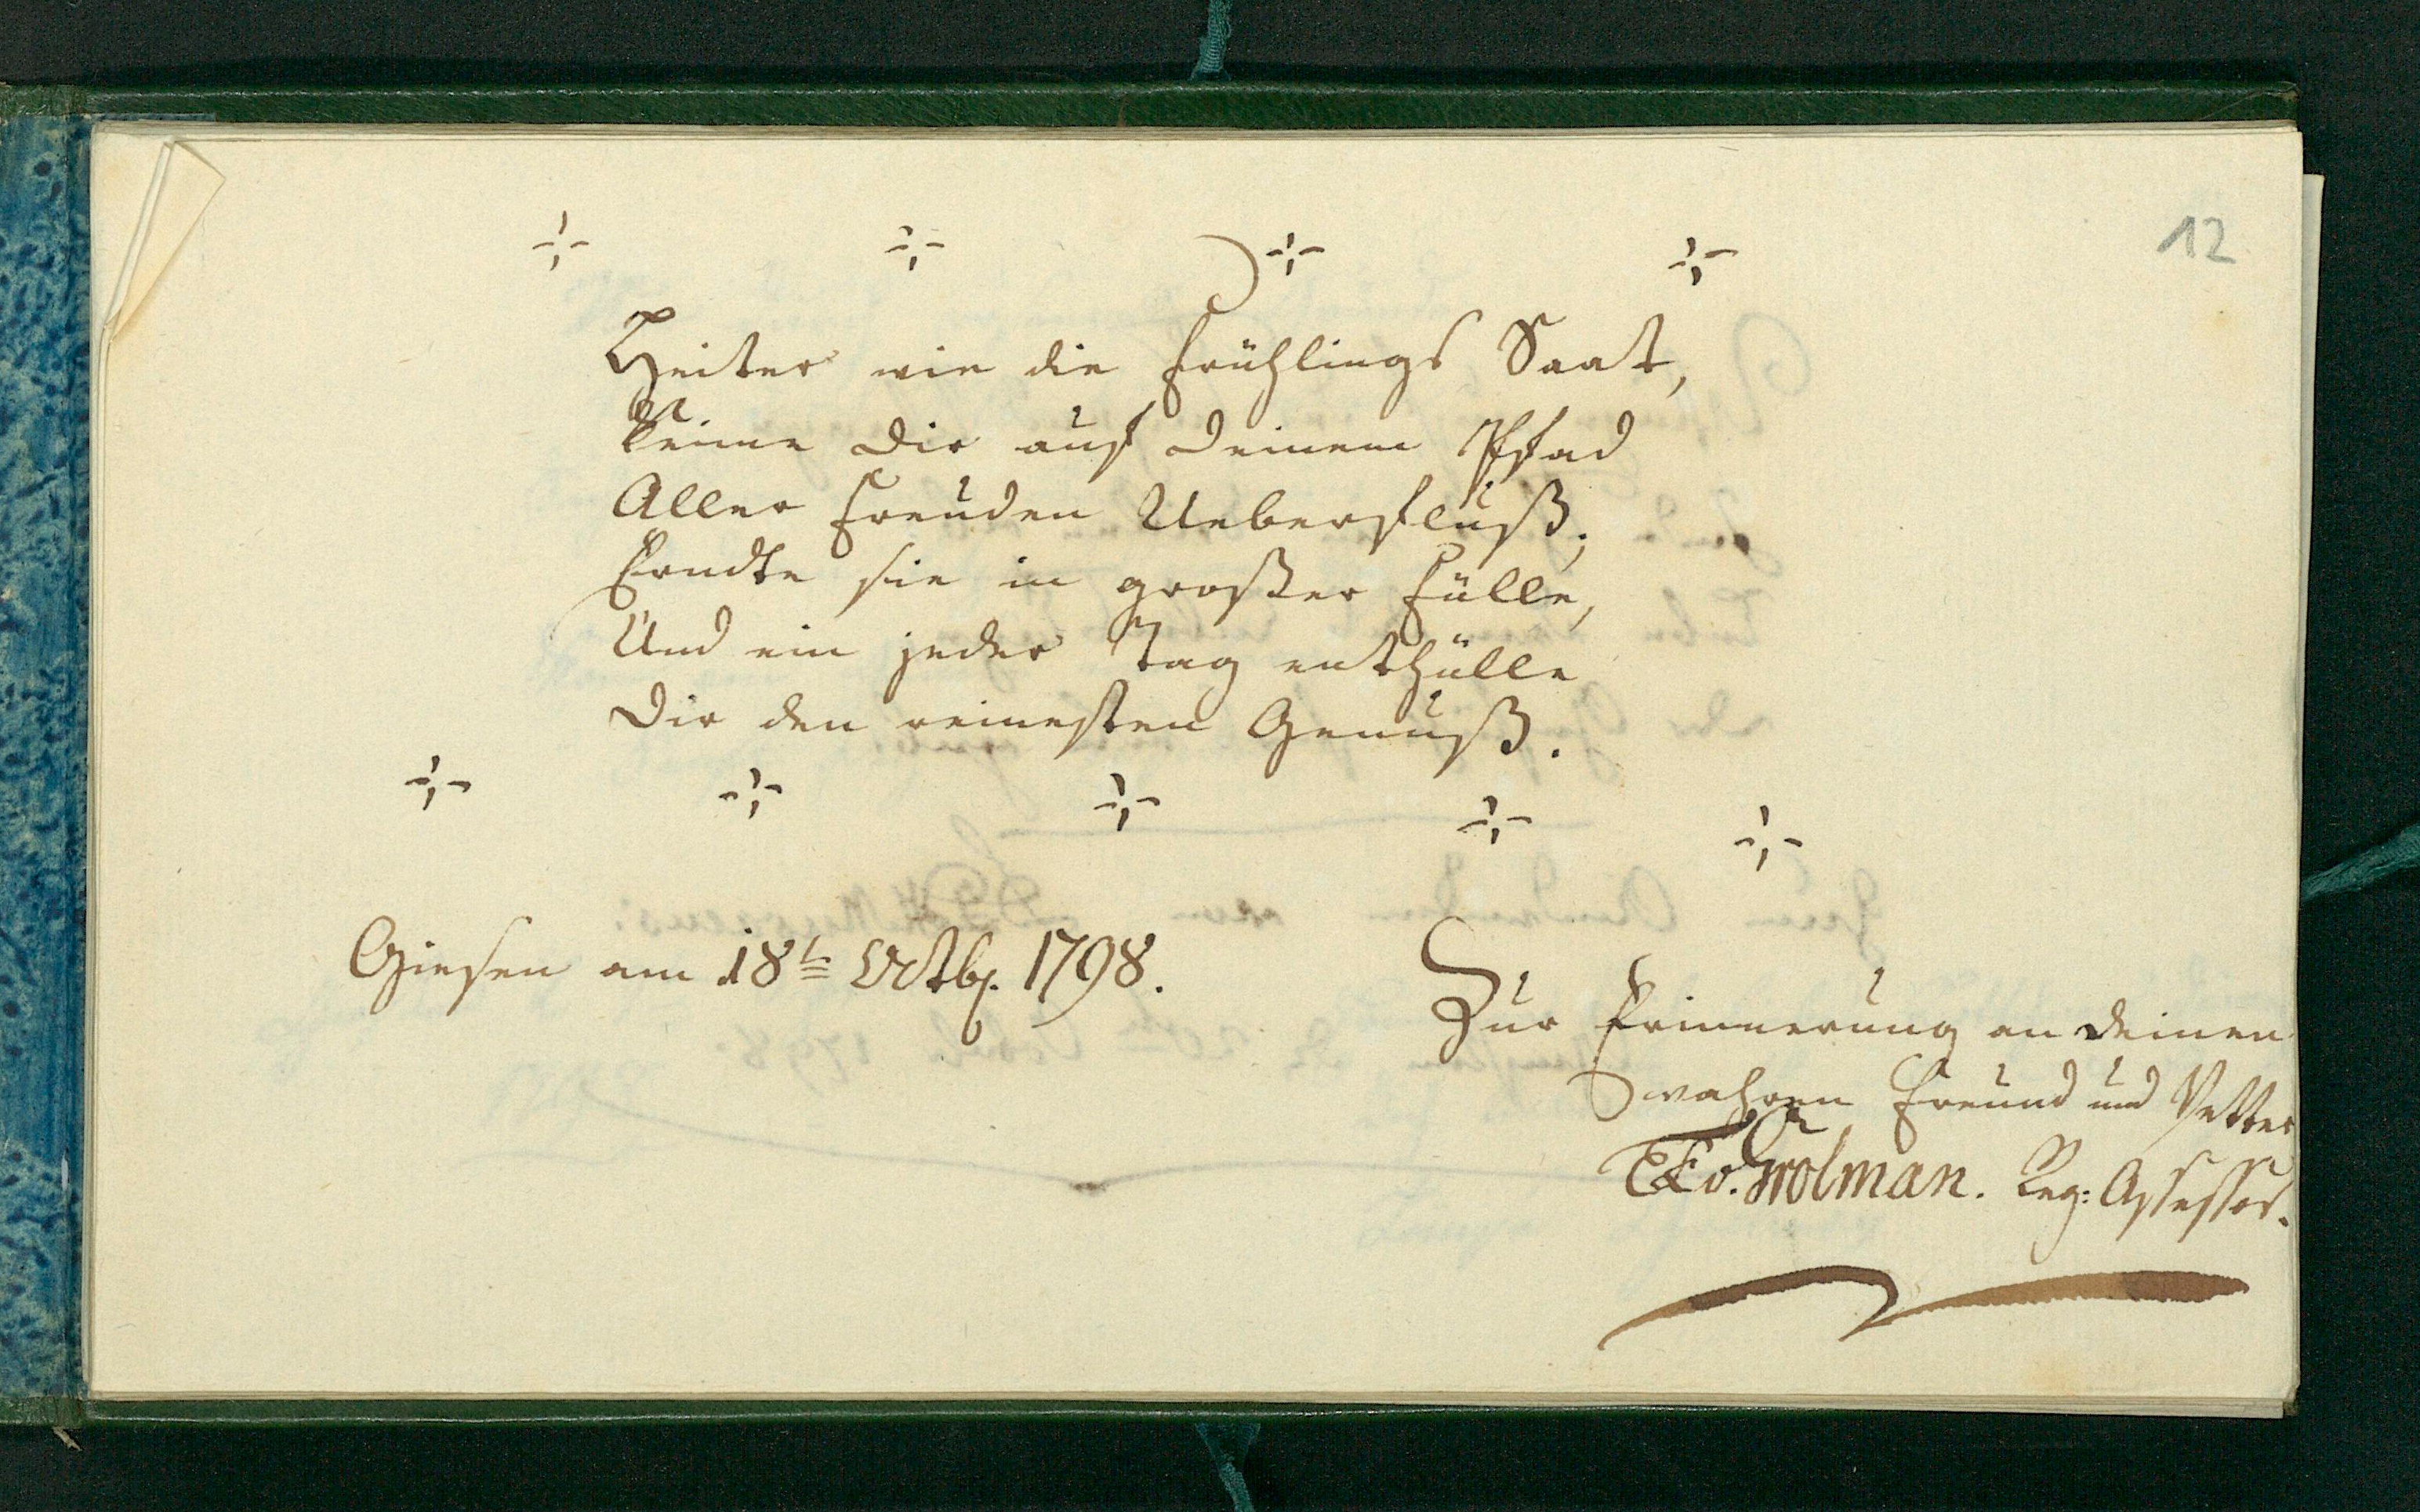 12
Heiter wie die Frühlings Saat,
Keime Dir auf Deinem Pfad
Aller Freuden Ueberfluß;
Erndte sie in großer Fülle,
Und ein jeder Tag enthülle
Dir den reinesten Genuß.
Giesen am 18t Octbr. 1798.
Zur Erinnerung an Deinen
wahren Freund und Vetter
v. Grolman. Reg: Assessor.